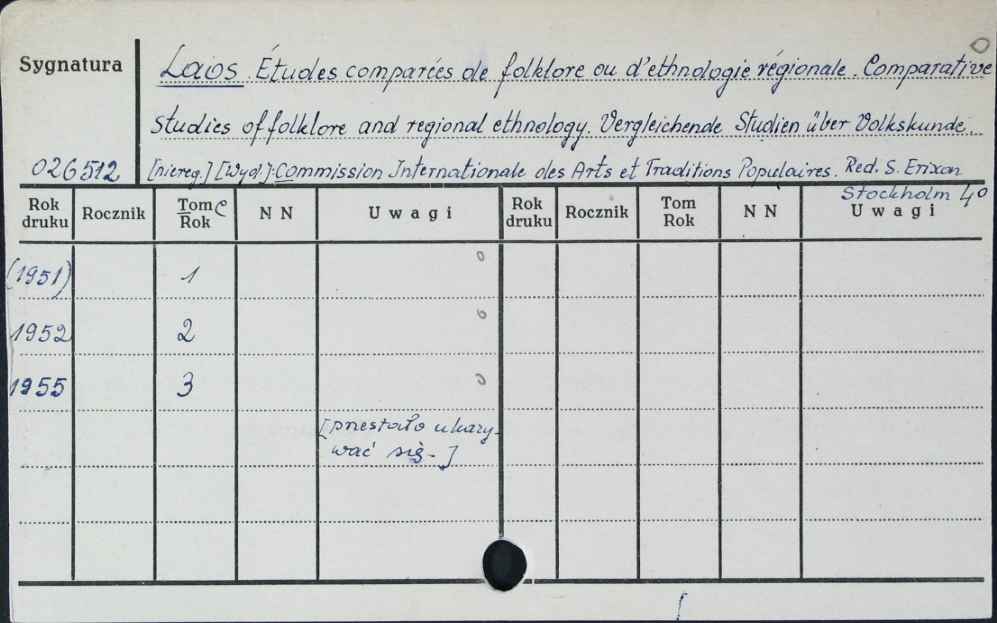 Sygnatura
Laos. Études comparées de folklore ou d'ethnologie régionale. Comparative
studies of folklore and regional ethnology. Vergleichende Studien über Volkskunde.
026512 [niereg.] [Wyd.]: Commission Internationale des Arts et Traditions Populaires. Red. S. Erixon
Stockholm 4°
Rok druku Rocznik Tom Rok N N Uwagi Rok druku Rocznik Tom Rok N N Uwagi
(1951) 1
1952 2
1955 3
[przestało ukazy-
wać się.]